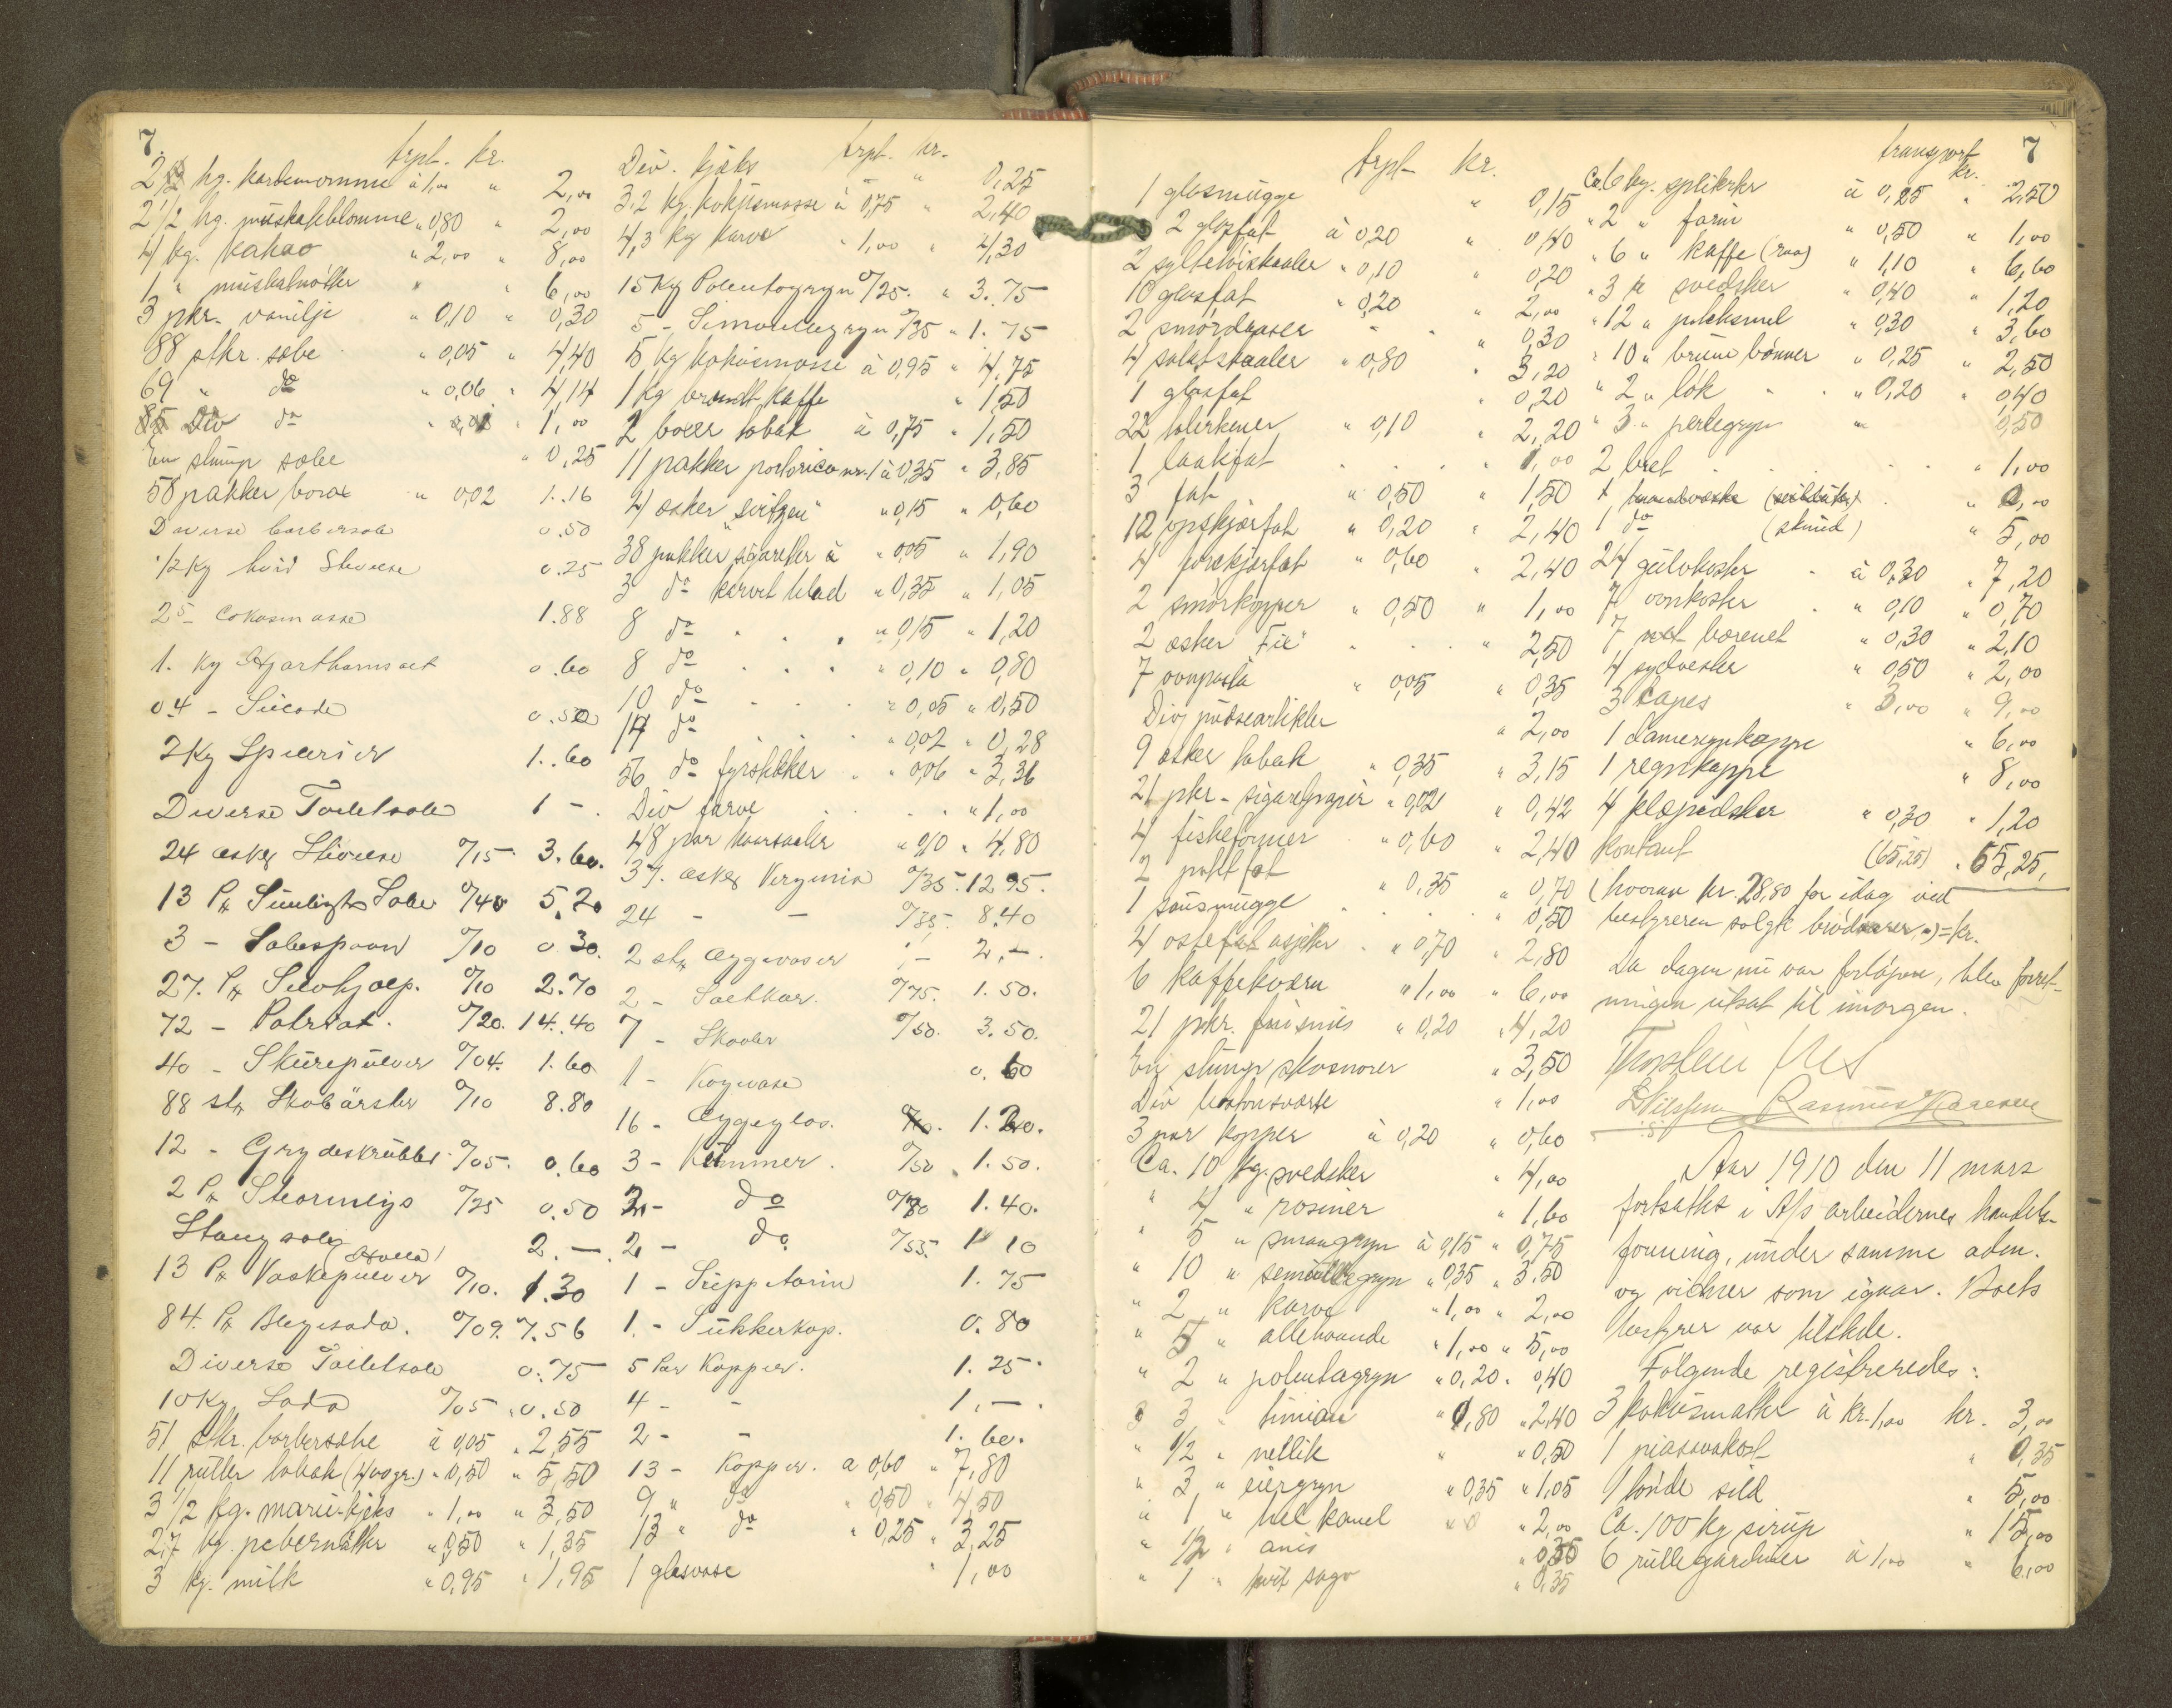 7.
trpt. kr.
2 hg. kardemomme à 1,00 " 2,00
2 1/2 hg. muskatblomme " 0,80 " 2,00
4 kg. kakao " 2,00 " 8,00
1 " muskatnøtter " " 6,00
3 pkr. vanilje " 0,10 " 0,30
88 stkr. sæbe " 0,05 " 4,40
69 " do " 0,06 " 4,14
Div do " 1,00
En slump sæbe " 0,25
58 pakker borax " 0,02 1.16
Diverse barbersæbe 0.50
1/2 Kg hvid Stivelse 0.25
2 5 - Cokosmasse 1.88
1. Kg Hjorthornsalt 0.60
0.4 - Sucade 0.50
2 Kg Spicerier 1.60
Diverse Toiletsæbe 1 -.
24 æsker Stivelse º/15 3.60.
13 Pk Sunlights Sæbe º/40 5.20
3 - Sæbespaan º/10 0 30.
27. Pk Selvhjælp. º/10 2.70
72 - Potrsat. º/20. 14.40
40 - Skurepulver º/04. 1.60
88 stk Skobørster º/10 8.80
12 - Grydeskrubber º/05. 0.60
2 Pk Stormlys º/25 0.50
Stangsæbe 2.—
(Holla)
13 Pk Vaskepulver º/10. 1.30
84. Pk Blegesoda. º/09. 7.56
Diverse Toiletsæbe 0.75
10 Kg Soda º/05 0.50
51 stkr. barbersæbe à 0,05 " 2,55
11 ruller tobak (400 gr.) " 0,50 " 5,50
3 1/2 kg. marie-kjeks " 1,00 " 3,50
2,7 kg. pebernøtter " 0,50 " 1,35
3 kg. milk " 0,95 " 1,95
trpt. kr.
Div. kjeks " 0,25
3,2 kg. kokusmasse à 0,75 " 2,40
4,3 kg karve " 1,00 " 4,30
15 Kg Polentagryn º/25. " 3.75
5 - Simoullegryn º/35 " 1.75
5 kg kokusmasse à 0,95 " 4,75
1 kg brændt kaffe " 1,50
2 boxer tobak à 0,75 " 1,50
11 pakker portorico nr. 1 à 0,35 " 3,85
4 æsker " 0,15 " 0,60
38 pakker sigaretter à " 0,05 " 1,90
3 do karvet blad " 0,35 " 1,05
8 do " 0,15 " 1,20
8 do " 0,10 " 0,80
10 do " 0,05 " 0,50
14 do " 0,02 " 0,28
56 do fyrstikker " 0,06 " 3,36
Div farve " 1,00
48 par haarsaaler " 0,10 " 4,80
37. æsker Virginia º/35. 12 95.
24 - - º/35. 8.40
2 stk Æggevaser 2.-
2 - Saltkar. º/75. 1.50.
7 - Skaaler º/50. 3.50.
1 - Kogevase 0.60
16 - Æggeglas. 1.20.
3 - Kummer. º/50 1.50.
2 - do º/70 1.40.
2 - do º/55. 1 10
1 - Supp terrin 1.75
1. - Sukkerkop. 0.80
5 Par Kopper. 1.25.
4 - - 1.—.
2 - - 1.60.
13 - Kopper. a 0,60 " 7,80
9 " do " 0,50 " 4,50
13 " do " 0,25 " 3,25
1 glasvase " 1,00
trpt- kr.
1 glasmugge " 0,15
2 glasfat à 0,20 " 0,40
2 sylteløiskaaler " 0,10 " 0,20
10 glasfat " 0,20 " 2,00
2 smørdaaser " 0,30
4 salatskaaler " 0,80 " 3,20
1 glasfat " 0,20
22 tallerkener " 0,10 " 2,20
1 laakfat " 1,00
3 fat " 0,50 " 1,50
12 opskjærfat " 0,20 " 2,40
4 forskjærfat " 0,60 " 2,40
2 smørkopper " 0,50 " 1,00
2 æsker Fix " 2,50
7 ovnpusta " 0,05 " 0,35
Div pudseartikler " 2,00
9 æsker tobak " 0,35 " 3,15
21 pkr. sigaretpapir " 0,02 " 0,42
4 fiskeformer " 0,60 " 2,40
2 pakt fat " 0,35 " 0,70
1 sausmugge " 0,50
4 ostefat asjetter " 0,70 " 2,80
6 kaffekværn " 1,00 " 6,00
21 pkr. " 0,20 " 4,20
En slump skosnorer " 3,50
Div " 1,00
3 par kopper à 0,20 " 0,60
Ca. 10 kg. svedsker " 4,00
" 4 " rosiner " 1,60
" 5 " smaagryn à 0,15 " 0,75
" 10 " semullegryn " 0,35 " 3.50
" 2 " karve " 1,00 " 2,00
" 5 " allehaande " 1,00 " 5,00
" 2 " polentagryn " 0,20 " 0,40
3 " timian " 0,80 " 2,40
" 1/2 " nellik " 0,50
" 3 " eiergryn " 0,35 " 1,05
" 1 " hel kanel " 2,00
" 1/2 " anis " 0,35
" 1 " hvit sago " 0,35
7
transport kr.
Ca 6 kg. spliterter à 0,25 " 2,50
" 2 " farin " 0,50 " 1,00
" 6 " kaffe (raa) " 1,10 " 6,60
" 3 " svedsker " 0,40 " 1,20
" 12 " potetmel " 0,30 " 3,60
" 10 " brune bønner " 0,25 " 2,50
" 2 " løk " 0,20 " 0,40
" 3 " perlegryn " 0,50
2 bret " 1,00
1 haandvæske
1 do (skind) " 5,00
24 gulvkoster à 0,30 " 7,20
7 ovnkoster " 0,10 " 0,70
7 net bærenet " 0,30 " 2,10
4 sydvester " 0,50 " 2,00
3 capes " 3,00 " 9,00
1 dameregnkappe " 6,00
1 regnkappe " 8,00
4 " 0,30 " 1,20
Kontant (65,25) " 65,25,
(hvorav kr. 28,80 for idag ved
bestyreren solgte brødvarer =) = kr.
Da dagen nu var forløpen, blev forret-
ningen utsat til imorgen.
Thorstein
Rasmus
Aar 1910 den 11 mars
fortsattes i A/s arbeidernes handels-
forening, under samme adm.
og vidner som igaar. Boets
bestyrer var tilstede.
Følgende registreredes:
3 kokusmatter à kr. 1,00 kr. 3,00
1 piassavakost " 0,35
1 tønde sild " 5,00
Ca. 100 kg sirup " 15,00
6 rullegardiner à 1,00 " 6,00